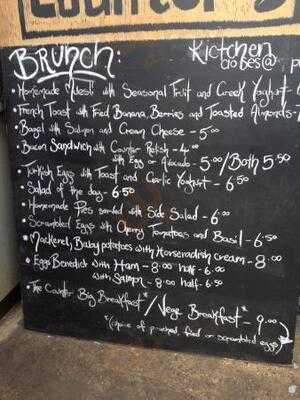 Counter
Brunch:
Kictchen
closes@
• Homemade Muesli with Seasonal Fruit and Greek Yoghurt - 6
• French Toast with Fried Banana, Berries and Toasted Almonds -
• Bagel with Salmon and Cream Cheese - 5.00
• Bacon Sandwich with Counter Relish - 4.00
with Egg or Avocado - 5.00 / Both 5.50
• Turkish Eggs with Toast and Garlic Yoghurt - 6.50
• Salad of the day - 6.50
• Homemade Pies served with Side Salad - 6.00
• Scrambled Eggs with Cherry Tomatoes and Basil - 6.50
• Mackerel, Baby potatoes with Horseradish cream - 8.00
• Eggs Benedict with Ham - 8.00 half - 6.00
with Salmon - 8.00 half - 6.50
• The Counter Big Breakfast* / Vege Breakfast* - 9.00
*(choice of poached, fried or scrambled eggs)